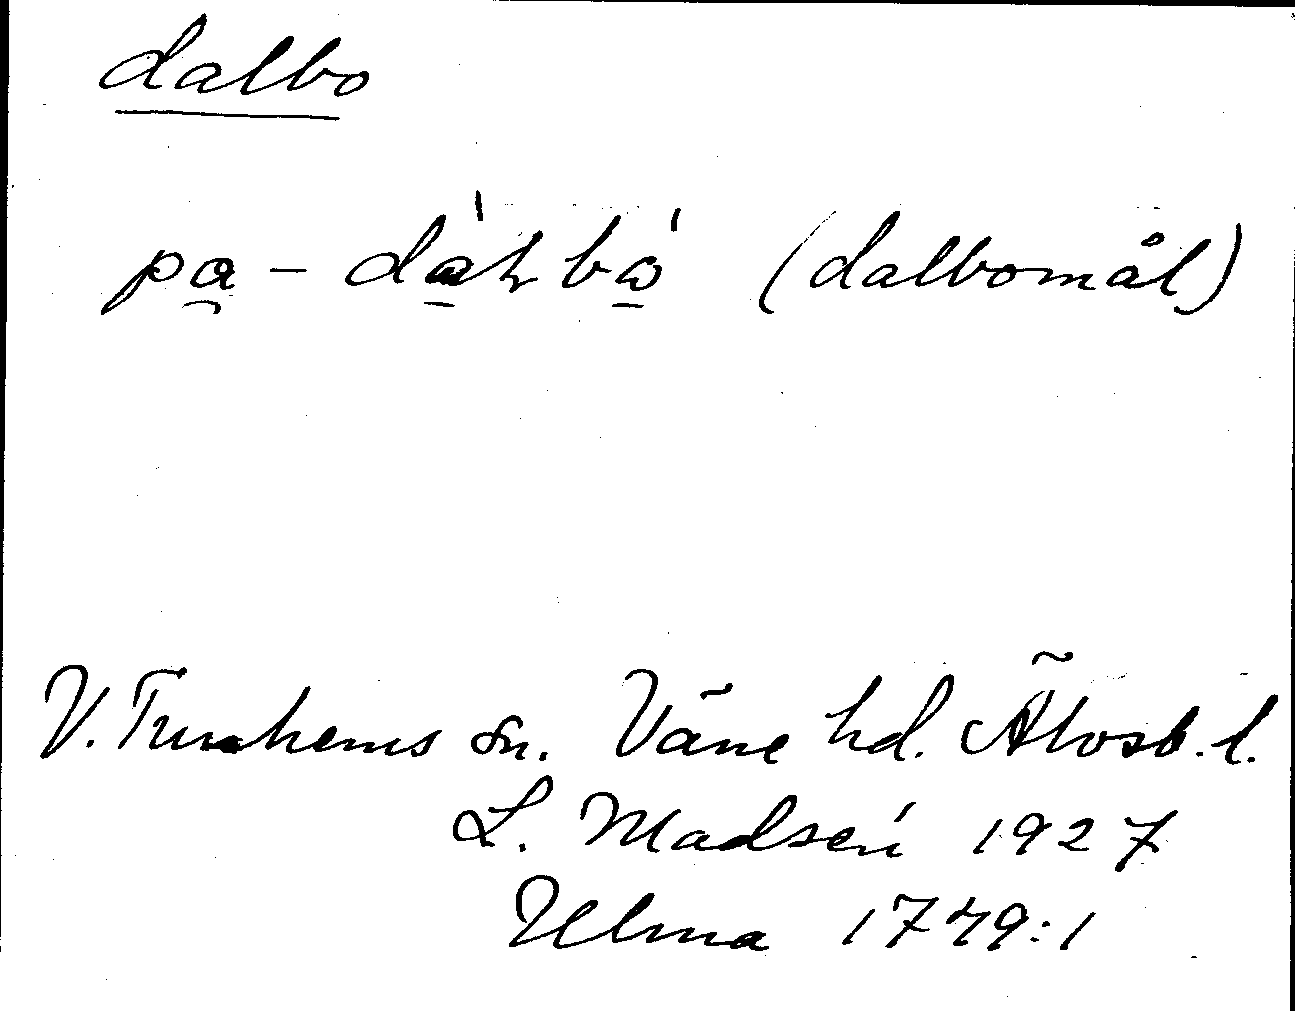 dalbo
pa - dàɫbò (dalbomål)
V. Tunhems sn. Väne hd. Älvsb. l.
L. Madsén 1927
Ulma 1779:1